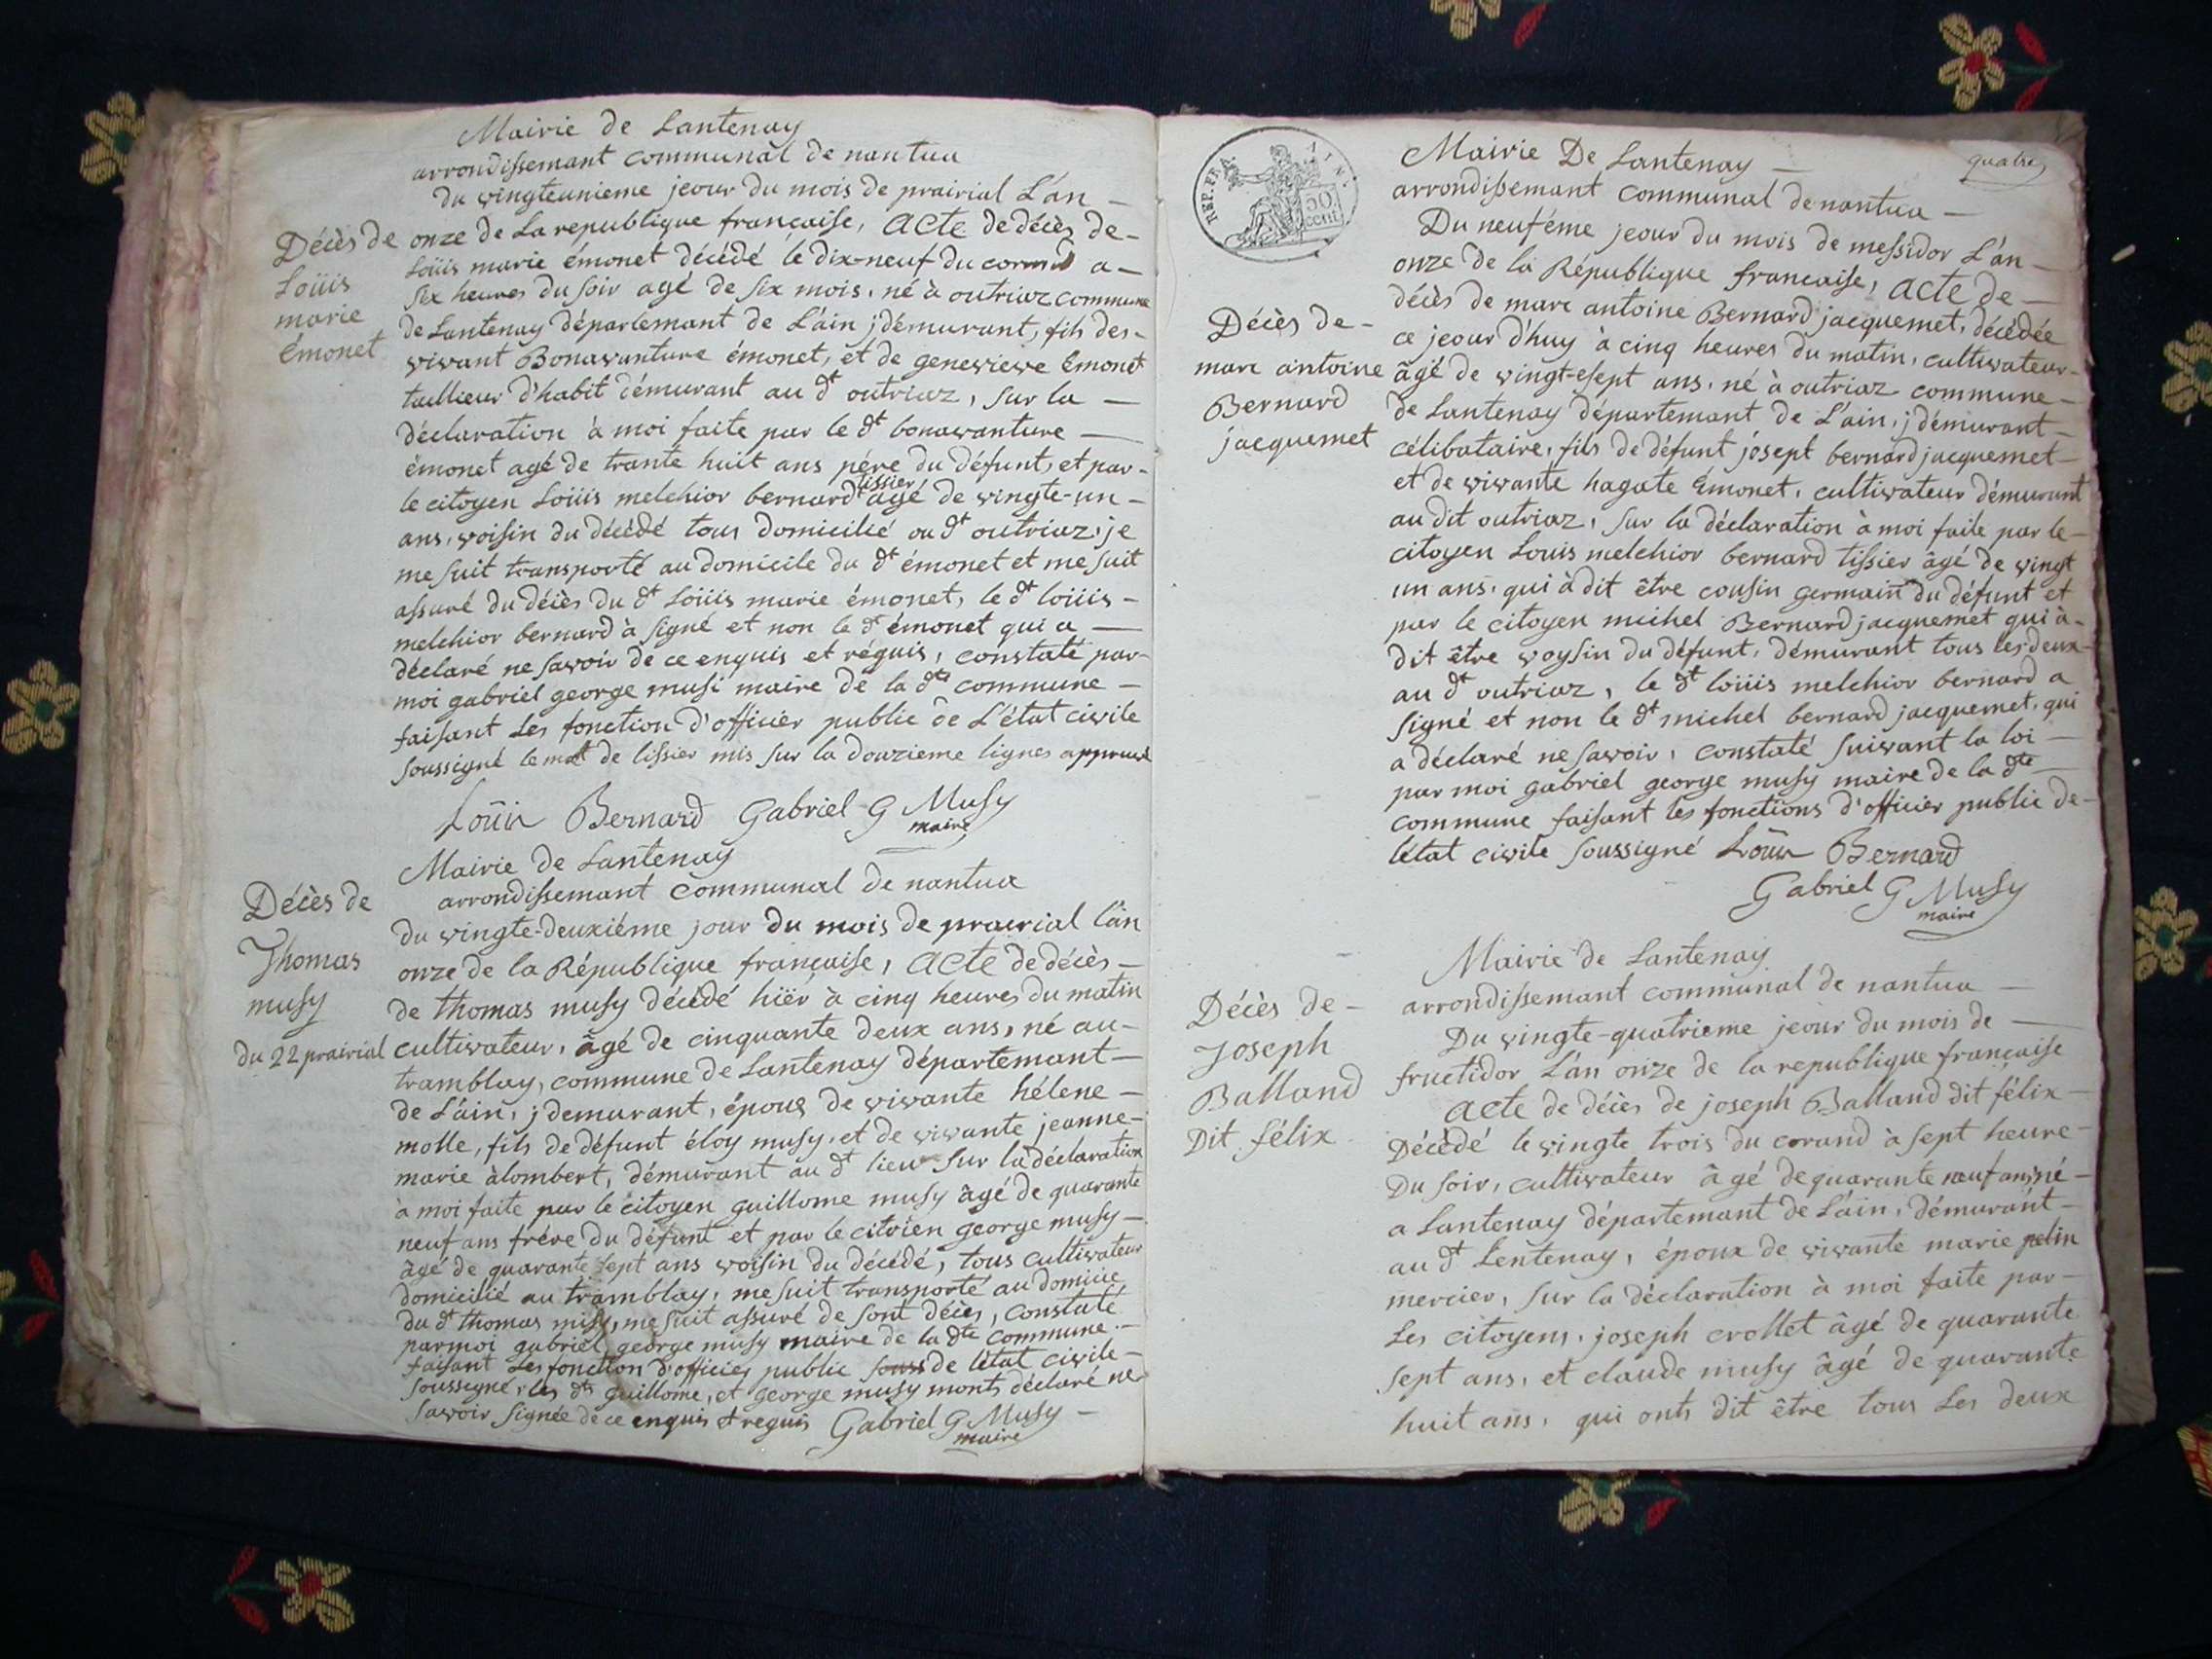 Mairie de Lantenay
arrondissemant communal de nantua
du vingteunieme jeour du mois de prairial L'an
Décès de
Loüis
marie
émonet
onze de La republique francaise, acte de décès de
Loüis marie émonet décédé le dix-neuf du a
six heures du soir agé de six mois, né à outriaz commune
de Lantenay départemant de L'ain j démurant, fils des
vivant Bonavanture émonet, et de genevieve Emonet
taillieur d'habit démurant au dt outriaz, sur la
déclaration à moi faite par le dt bonavanture
émonet agé de trante huit ans pére du défunt, et par
le citoyen Loüis melchior bernard tissier agé de vingte-un
ans, voisin du décédé tous domicilié au dt outriaz, je
me suit transporté au domicile du dt émonet et me suit
assuré du décès du dt Loüis marie émonet, le dt loüis
melchior bernard à signé et non le dt émonet qui a
déclaré ne savoir de ce enquis et réquis, constaté par
moi gabriel george musi maire de la dte commune
faisant Les fonction d'officier public de L'état civile
soussigné le mot de tissier mis sur la douzieme lignes approuvé
Loüis Bernard Gabriel G Musy
maire
Mairie de Lantenay
arrondissemant communal de nantua
Décès de
Thomas
musy
du 22 prairial
du vingte-deuxiéme jour du mois de prairial l'an
onze de la République française, acte de décès
de thomas musy décédé hïer à cinq heures du matin
cultivateur, âgé de cinquante deux ans, né au
tramblay, commune de Lantenay départemant
de L'ain, j demurant, époux de vivante hélene
molle, fils de défunt éloy musy, et de vivante jeanne
marie àlombert, démurant au dt lieu sur la déclaration
à moi faite par le citoyen guillome musy âgé de quarante
neuf ans frére du défunt et par le citoien george musy
âgé de quarante sept ans voisin du décédé, tous cultivateur
domicilié au tramblay, me suit transporté au domicie
du dt thomas misy, me suit assuré de sont décès, constaté
par moi gabriel george musy maire de la dte commune
faisant Les fonction d'officier public de létat civile
soussigné, les dts guillome, et george musy monts déclaré ne
savoir signée de ce enquis et requis Gabriel G Musy
maire
REP. FRA.
50
cent.
quatre
Mairie De Lantenay
arrondissemant communal de nantua
Du neuféme jeour du mois de messidor L'an
onze de la République francaise, acte de
Décès de
marc antoine
Bernard
jacquemet
décès de marc antoine Bernard jacquemet, décédée
ce jeour d'huy à cinq heures du matin, cultivateur
âgé de vingt-esept ans, né à outriaz commune
de Lantenay départemant de L'ain, j démurant
célibataire, fils de défunt jósept bernard jacquemet
et de vivante hagate Emonet, cultivateur démurant
au dit outriaz, sur la déclaration à moi faite par le
citoyen Louis melchior bernard tissier âgé de vingt
un ans, qui à dit être cousin germain du défunt et
par le citoyen michel Bernard jacquemet qui à
dit être voysin du défunt, démurant tous les deux
au dt outriaz, le dt loüis melchior bernard a
signé et non le dt michel bernard jacquemet, qui
a déclaré ne savoir, constaté suivant la loi
par moi gabriel george musy maire de la dte
commune faisant les fonctions d'officier public de
létat civile soussigné Loüis Bernard
Gabriel G Musy
maire
Mairie de Lantenay
arrondissemant communal de nantua
Décès de
Joseph
Balland
Dit félix
Du vingte-quatrieme jeour du mois de
fructidor L'an onze de la republique française
acte de décès de joseph Balland dit félix
Décédé le vingte trois du corand à sept heure
Du soir, cultivateur âgé de quarante neuf ans, né
a Lantenay départemant de L'ain, démurant
au dt Lentenay, époux de vivante marie pelin
mercier, sur la déclaration à moi faite par
Les citoyens, joseph crollet âgé de quarante
sept ans, et claude musy âgé de quarante
huit ans, qui onts dit être tous Les deux